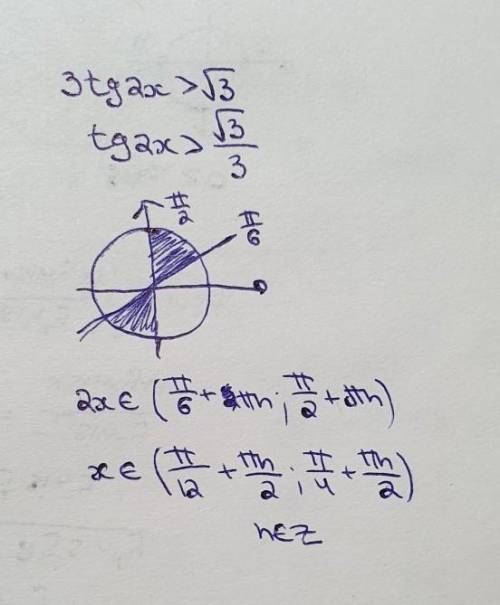 3tg2x > √3
tg2x > √3/3
π/2
π/6
0
2x ∈ (π/6 + πn; π/2 + πn)
x ∈ (π/12 + πn/2; π/4 + πn/2)
n∈Z